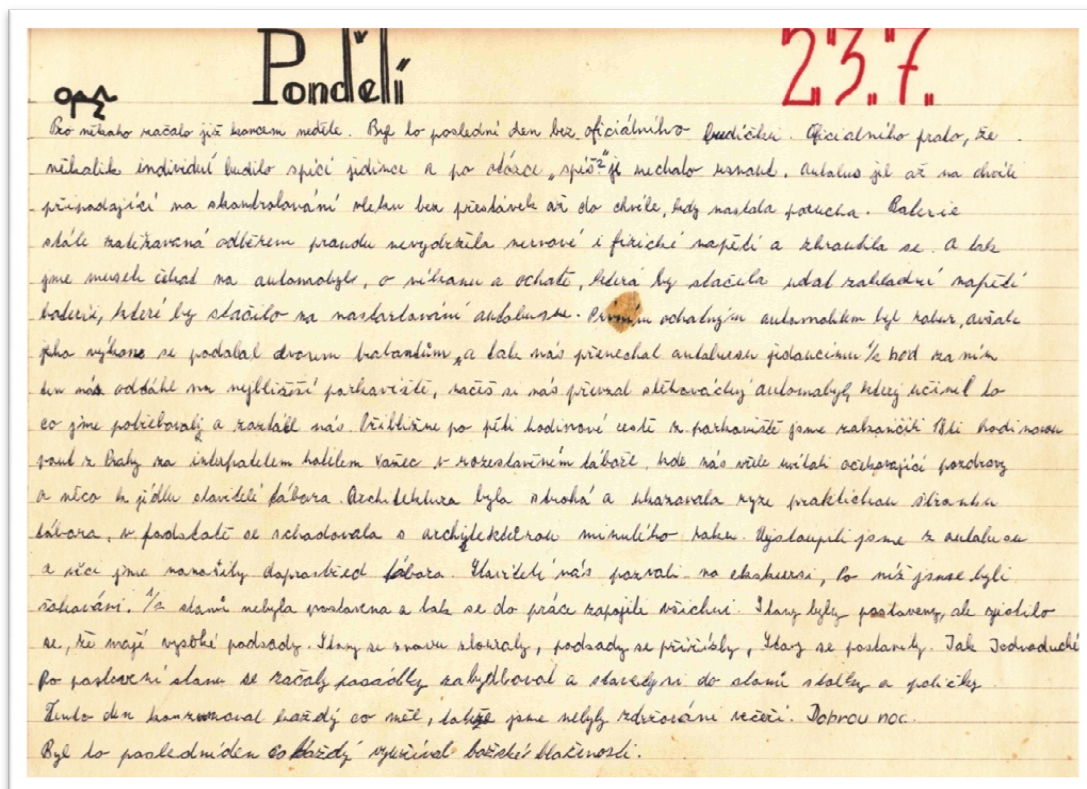 Pondělí 23.7.
Pro někoho začalo již koncem neděle. Byl to poslední den bez oficiálního budíčku. Oficialního proto, že
několik individuí budilo spící jedince a po otázce „spíš?" je nechalo usnout. Autobus jel až na chvíle
připadající na skontrolování vleku bez přestávek až do chvíle, kdy nastala porucha. Baterie
stále zatěžovaná odběrem proudu nevydržela nervové i fizické napětí a zhroutila se. A tak
jsme museli čekat na automobyl, o výkonu a ochotě, která by stačila udat základní napětí
baterii, které by stačilo na nastartování autobusu. Prvním ochotným automobilem byl autobus, avšak
jeho výkon se podobal dvoum trabantům, a tak nás přenechal autobusu jedoucímu 1/2 hod za ním
ten nás odtáhl na nejbližší parkoviště, načež si nás převzal stěhovácký automobyl, který učinil to
co jsme potřebovaly a roztáhl nás. Přibližně po pěti hodinové cestě z parkoviště jsme zakončili hodinovou
pouť z Prahy za interhotelem hotelem Vaňec v rozestavěném táboře, kde nás vřele uvítali očekávající pozdravy
a něco k jídlu stavitelé tábora. Architektura byla strohá a ukazovala ryze praktickou stránku
tábora, v podstatě se schodovala s architekturou minulého roku. Vystoupili jsme z autobusu
a věci jsme nanosily doprostřed tábora. Stavitelé nás pozvali na exkursi, Po níž jsme byli
šokováni. 1/2 stanů nebyla postavena a tak se do práce zapojili všichni. Stany byly postaveny, ale zjistilo
se, že mají vysoké podsady. Stany se znovu zbouraly, podsady se přiřízly, Stany se postavily. Jak Jednoduché
Po postavení stanu se začaly posádky zabydlovat a stavěly si do stanů stolky a poličky
Tento den konzumoval každý co měl, takže jsme nebyly zdržováni večeří. Dobrou noc.
Byl to poslední den co každý využíval božské blaženosti.